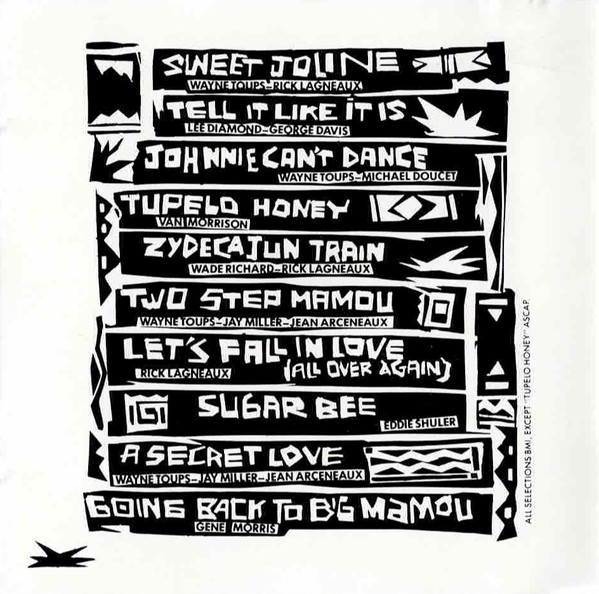 SWEET JOLINE
WAYNE TOUPS–RICK LAGNEAUX
TELL IT LIKE IT IS
LEE DIAMOND–GEORGE DAVIS
JOHNNIE CAN'T DANCE
WAYNE TOUPS–MICHAEL DOUCET
TUPELO HONEY
VAN MORRISON
ZYDECAJUN TRAIN
WADE RICHARD–RICK LAGNEAUX
TWO STEP MAMOU
WAYNE TOUPS–JAY MILLER–JEAN ARCENEAUX
LET'S FALL IN LOVE
(ALL OVER AGAIN)
RICK LAGNEAUX
SUGAR BEE
EDDIE SHULER
A SECRET LOVE
WAYNE TOUPS–JAY MILLER–JEAN ARCENEAUX
GOING BACK TO BIG MAMOU
GENE MORRIS
ALL SELECTIONS BMI, EXCEPT "TUPELO HONEY" ASCAP.